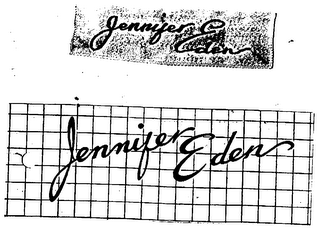 Jennifer E
Eden
Jennifer Eden